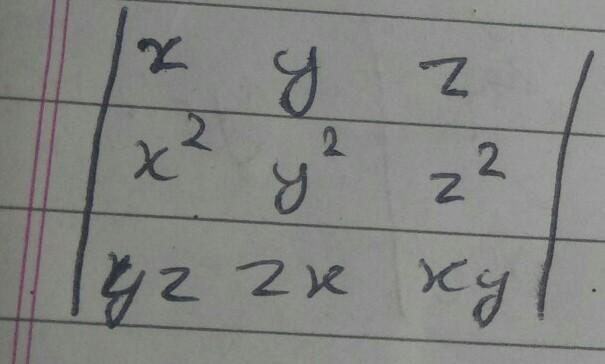 | x y z |
| x² y² z² |
| yz zx xy |